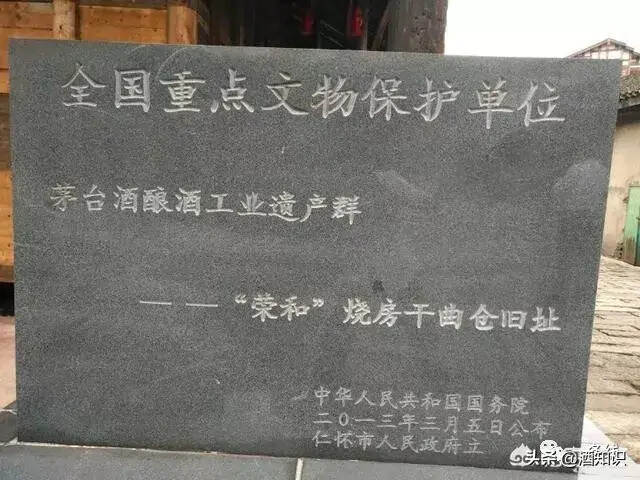 全国重点文物保护单位
茅台酒酿酒工业遗产群
——“荣和”烧房干曲仓旧址
中华人民共和国国务院
二〇一三年三月五日公布
仁怀市人民政府立
头条@酒知识